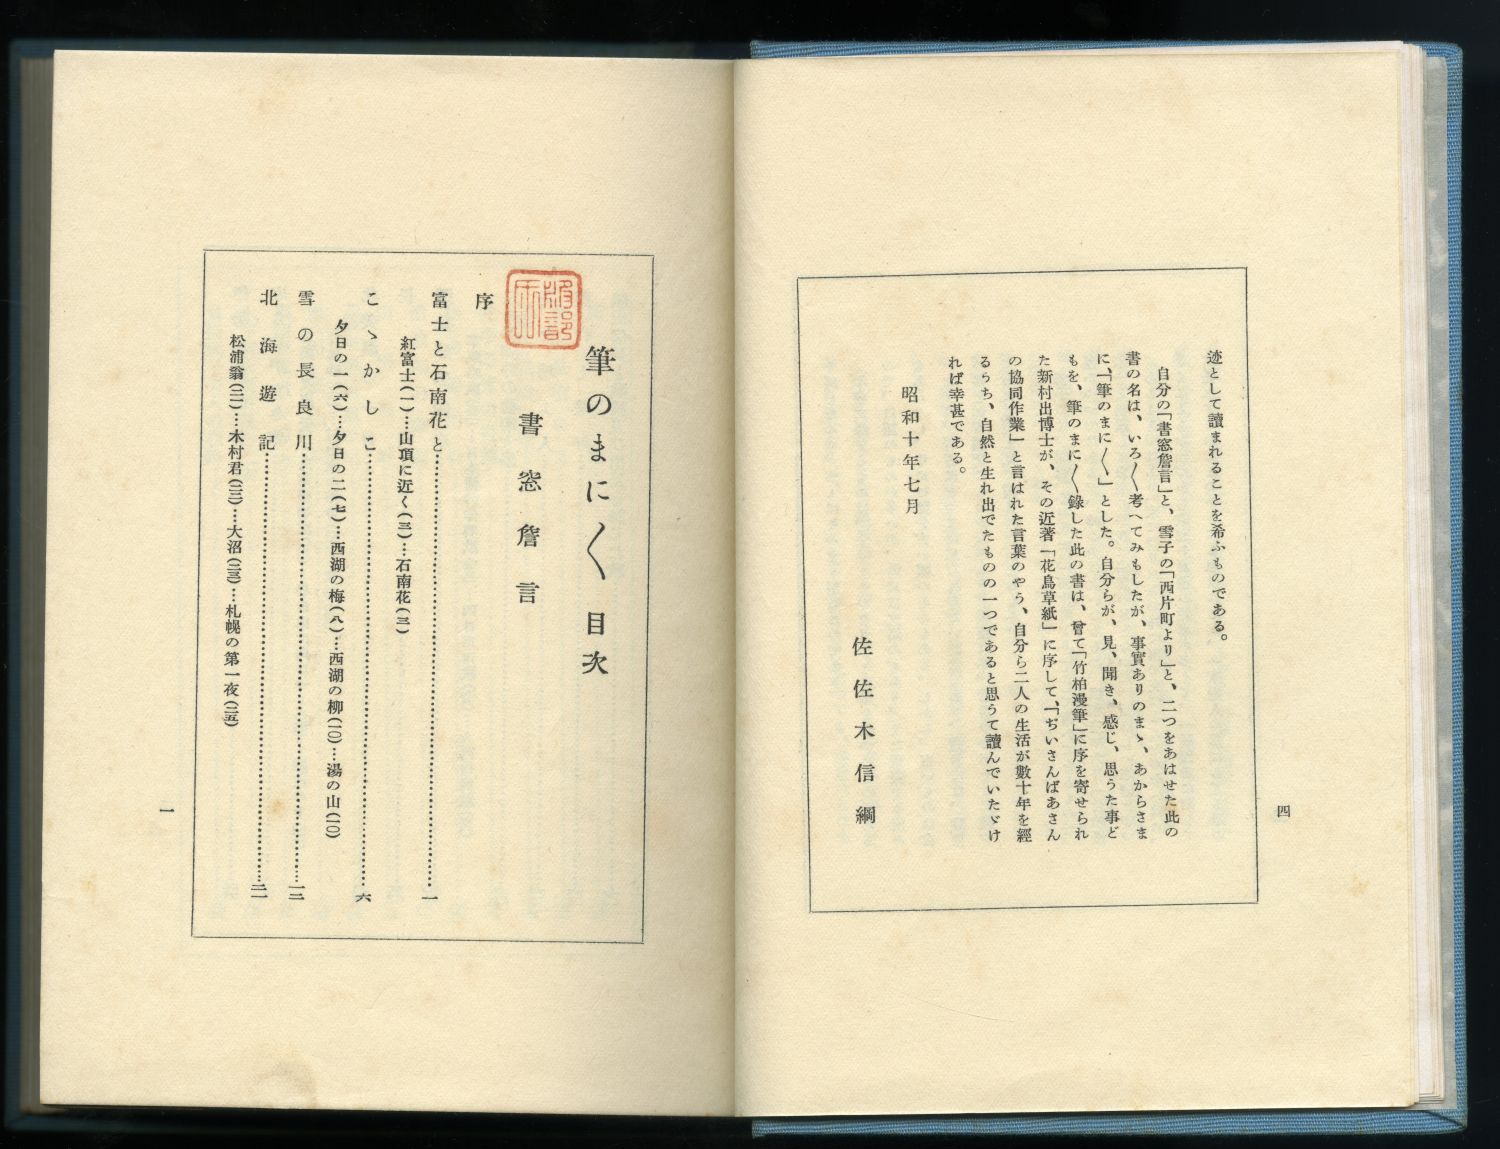 迹として讀まれることを希ふものである。
自分の「書窓詹言」と、雪子の「西片町より」と、二つをあはせた此の
書の名は、いろ〳〵考へてみもしたが、事實ありのまゝ、あからさま
に、「筆のまに〳〵」とした。自分らが、見、聞き、感じ、思うた事ど
もを、筆のまに〳〵錄した此の書は、曾て「竹柏漫筆」に序を寄せられ
た新村出博士が、その近著「花鳥草紙」に序して、「ぢいさんばあさん
の協同作業」と言はれた言葉のやう、自分ら二人の生活が數十年を經
るうち、自然と生れ出でたものの一つであると思うて讀んでいたゞけ
れば幸甚である。
昭和十年七月
佐佐木信綱
四
筆のまに〳〵目次
書窓詹言
序
富士と石南花と……一
紅富士(一)…山頂に近く(三)…石南花(三)
こゝかしこ……六
夕日の一(六)…夕日の二(七)…西湖の梅(八)…西湖の柳(一〇)…湯の山(一〇)
雪の長良川……一三
北海遊記……二一
松浦翁(二一)…木村君(二三)…大沼(二三)…札幌の第一夜(二五)
一